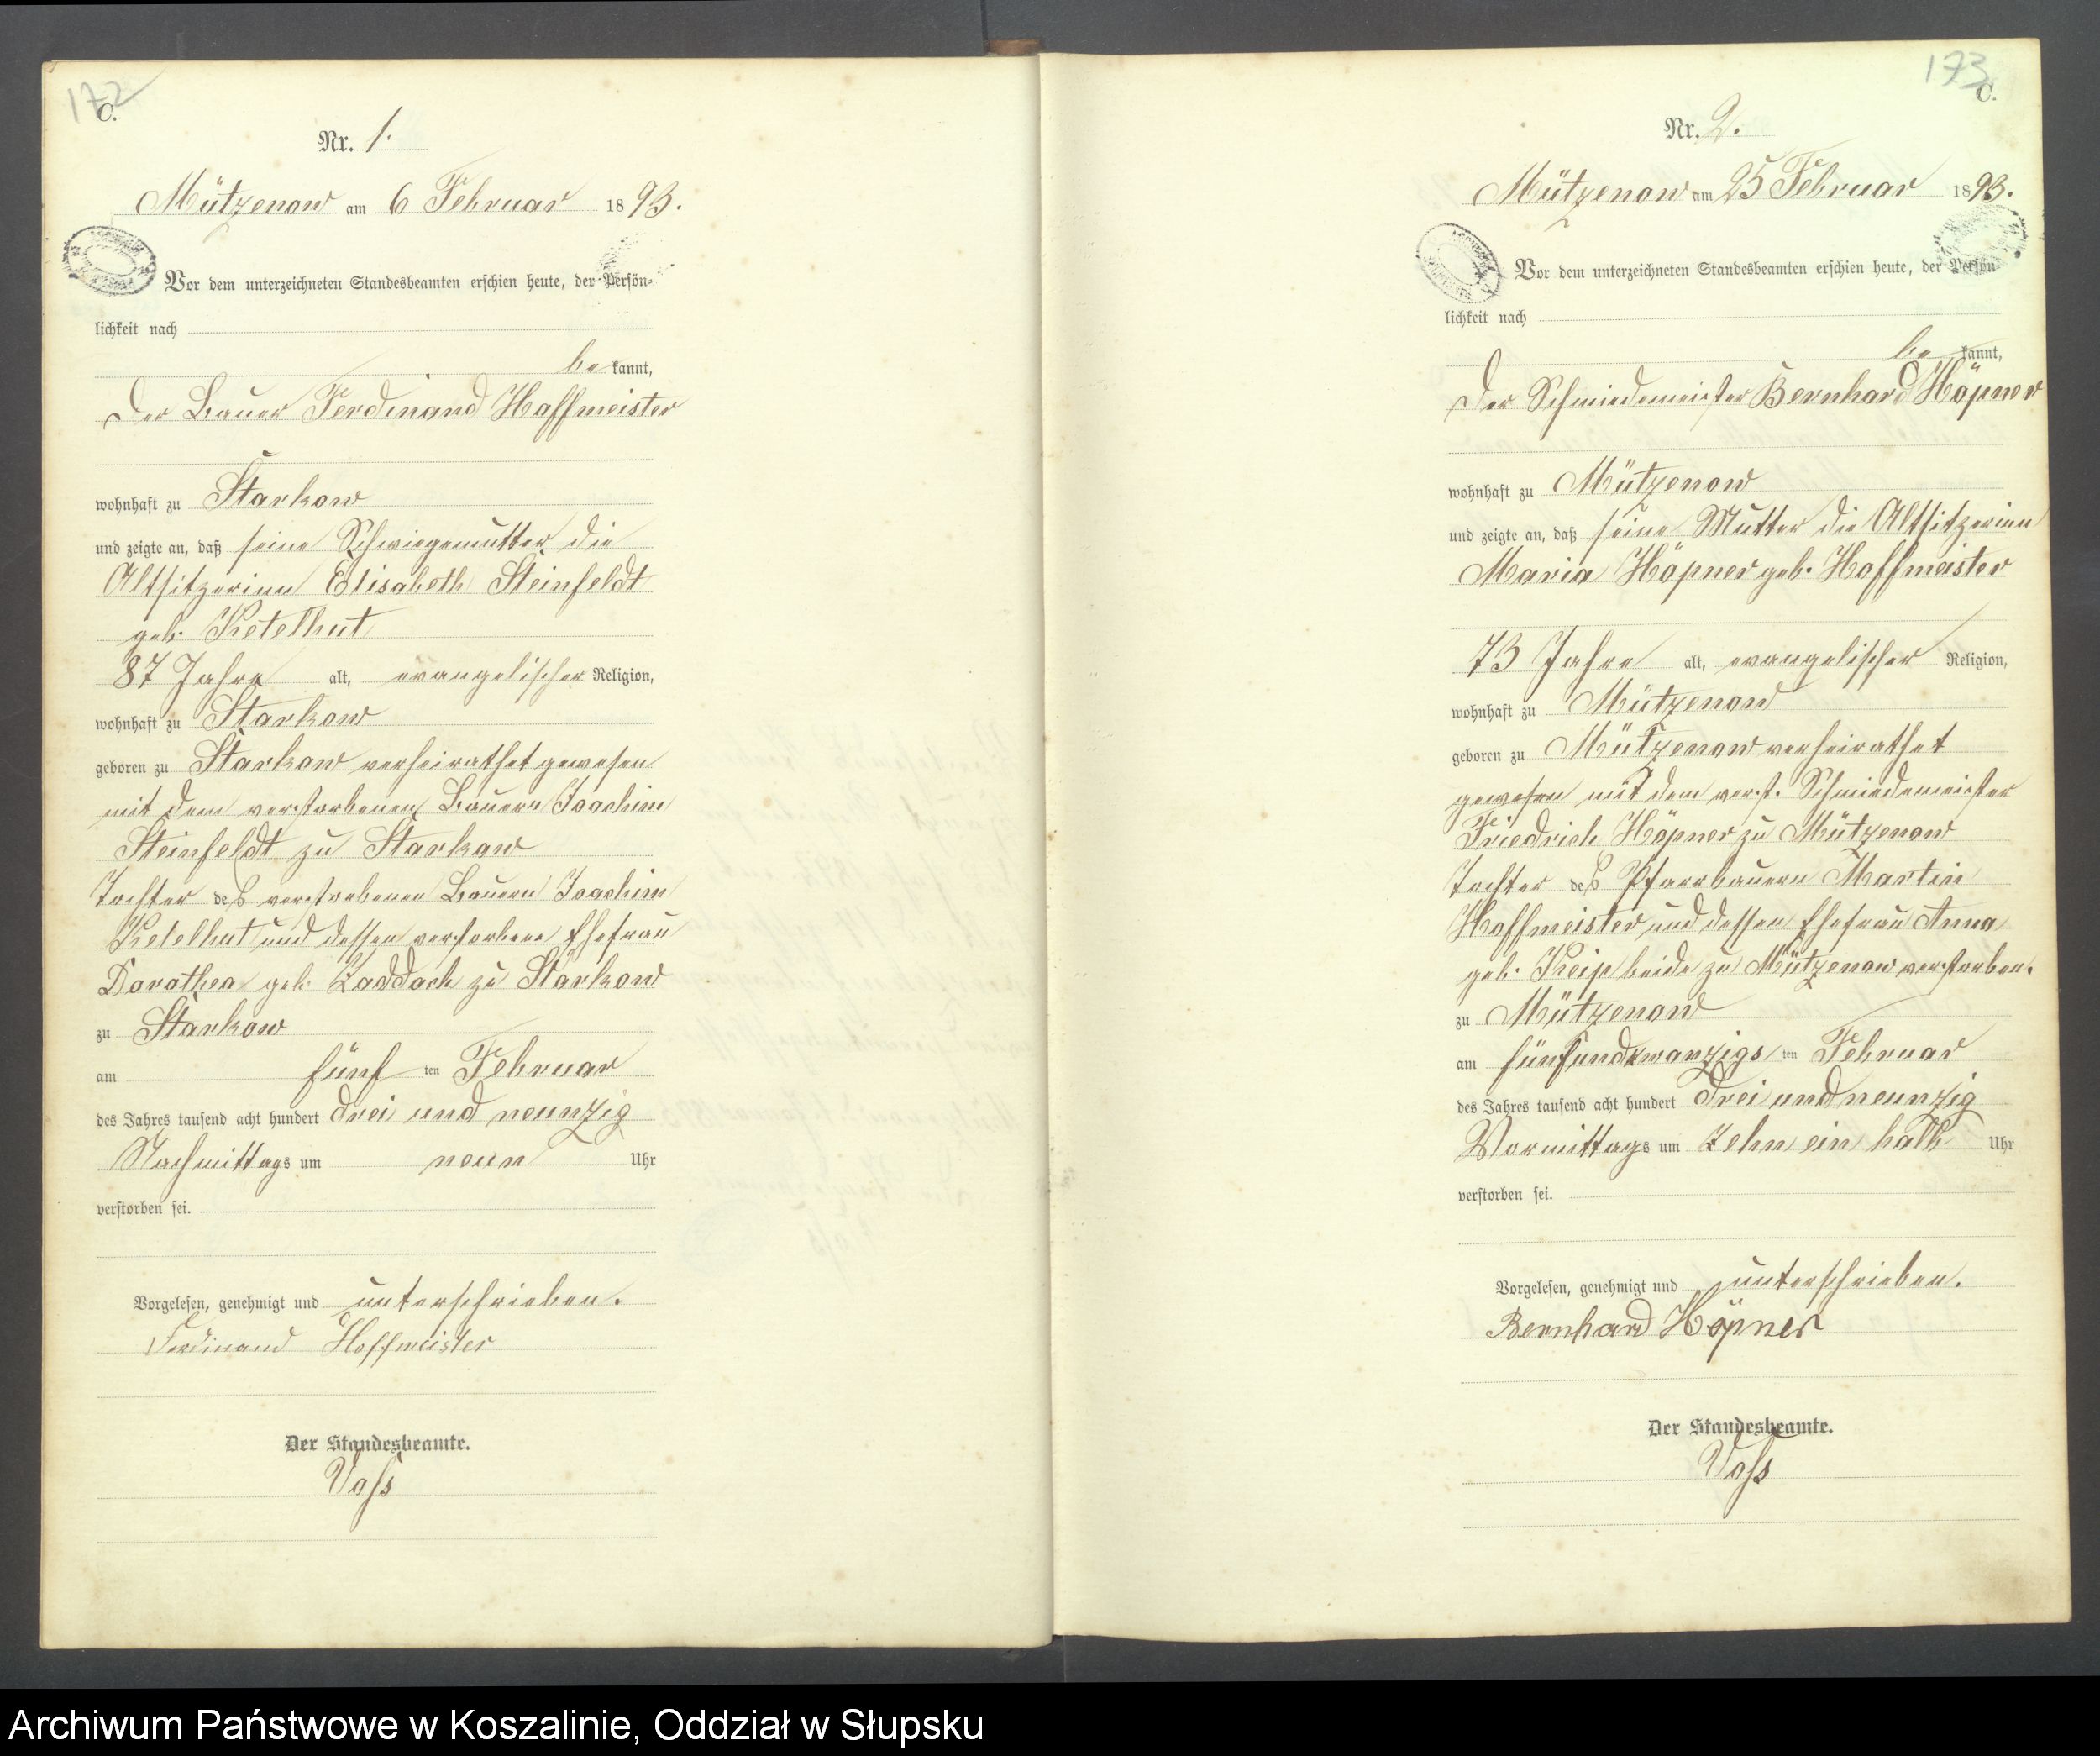 172
C.
Nr. 1.
Mützenow am 6 Februar 1893.
Vor dem unterzeichneten Standesbeamten erschien heute, der Persön-
lichkeit nach
be kannt,
der Bauer Ferdinand Hoffmeister
wohnhaft zu Starkow
und zeigte an, daß seine Schwiegemutter die
Altsitzerinn Elisabeth Steinfeldt
geb. Ketelhut
87 Jahre alt, evangelischer Religion,
wohnhaft zu Starkow
geboren zu Starkow verheirathet gewesen
mit dem verstorbenen Bauern Joachim
Steinfeldt zu Starkow
Tochter des verstorbenen Bauern Joachim
Ketelhut und dessen verstorbene Ehefrau
Dorothea geb. Zaddach zu Starkow
zu Starkow
am fünf ten Februar
des Jahres tausend acht hundert drei und neunzig
Nachmittags um neun Uhr
verstorben sei.
Vorgelesen, genehmigt und unterschrieben.
Ferdinand Hoffmeister
Der Standesbeamte.
Voss
173
C.
Nr. 2.
Mützenow am 25 Februar 1893.
Vor dem unterzeichneten Standesbeamten erschien heute, der Persön-
lichkeit nach
be kannt,
der Schmiedemeister Bernhard Höpner
wohnhaft zu Mützenow
und zeigte an, daß seine Mutter die Altsitzerinn
Maria Höpner geb. Hoffmeister
73 Jahre alt, evangelischer Religion,
wohnhaft zu Mützenow
geboren zu Mützenow verheirathet
gewesen mit dem verst. Schmiedemeister
Friedrich Höpner zu Mützenow
Tochter des Pfarrbauern Martin
Hoffmeister und dessen Ehefrau Anna
geb. Keip beide zu Mützenow verstorben.
zu Mützenow
am fünfundzwanzigs ten Februar
des Jahres tausend acht hundert drei und neunzig
Vormittags um Zehn ein halb Uhr
verstorben sei.
Vorgelesen, genehmigt und unterschrieben.
Bernhard Höpner
Der Standesbeamte.
Voss
Archiwum Państwowe w Koszalinie, Oddział w Słupsku